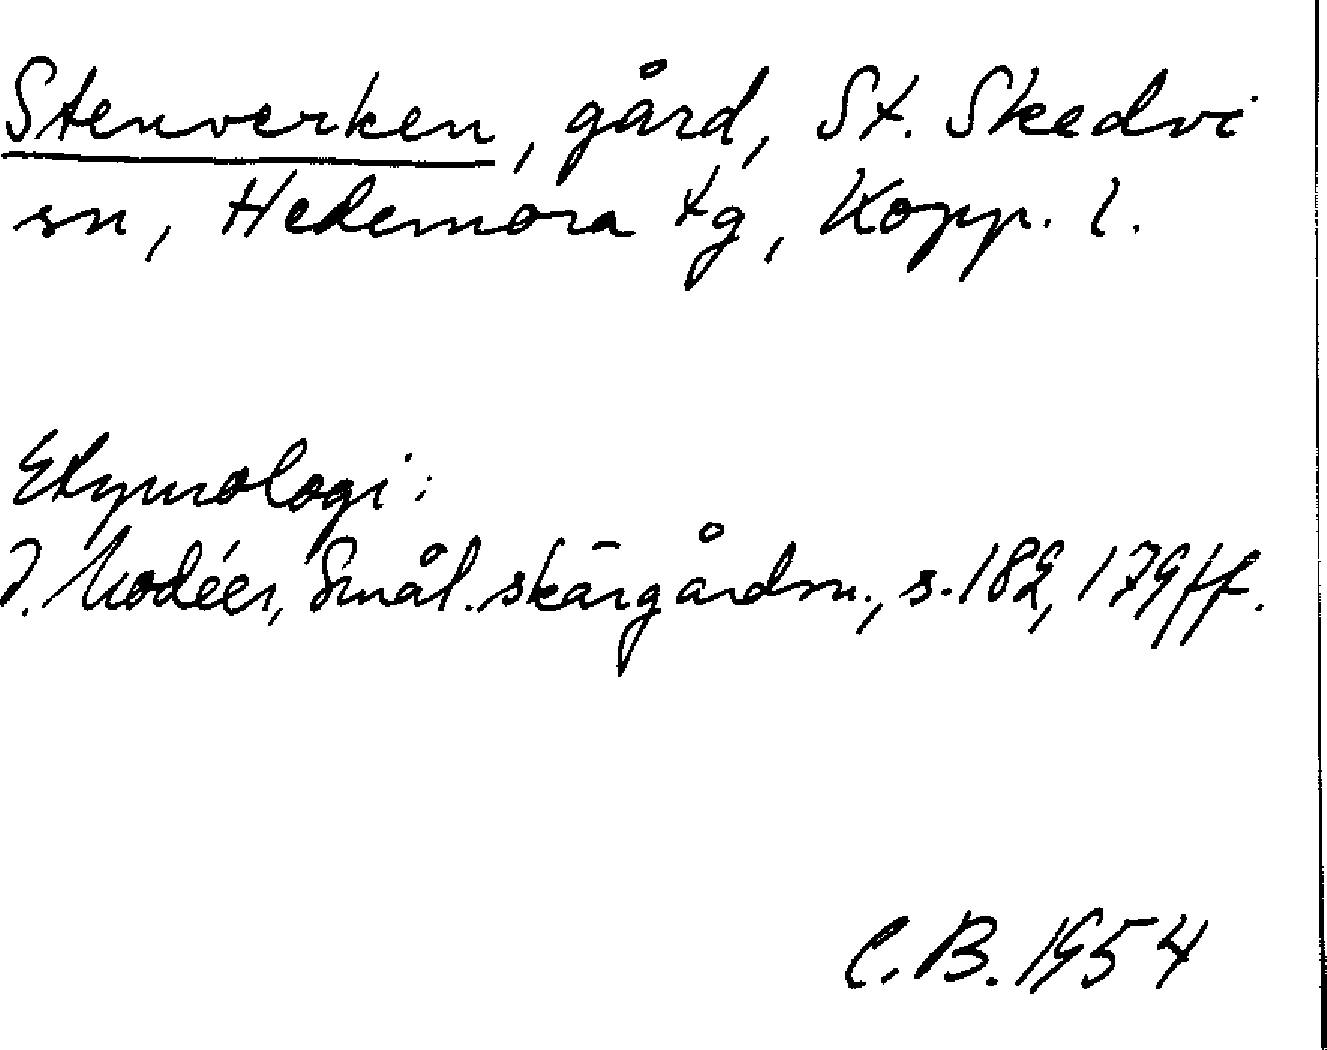 Stenverken, gård, St. Skedvi
sn, Hedemora tg, Kopp. l.
Etymologi:
I. Modéer, Smål. skärgårdsn., s. 182, 179 ff.
C. B. 1954